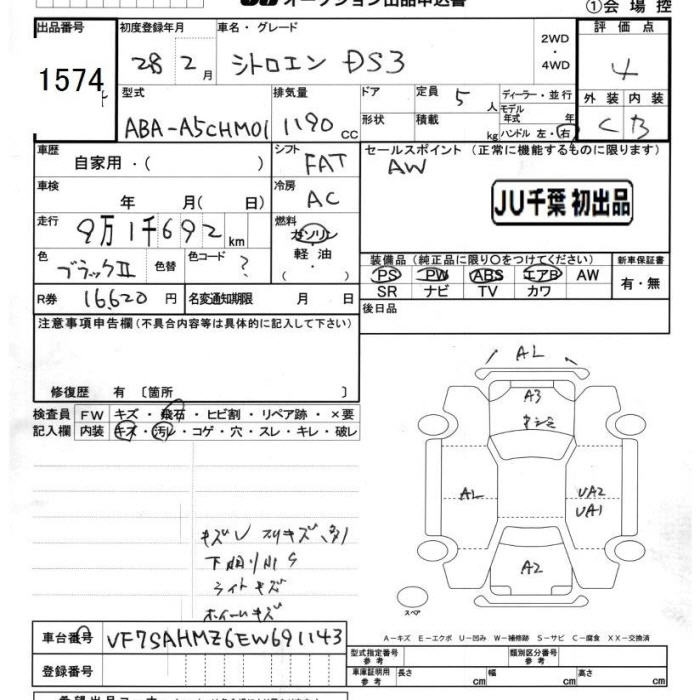 オークション出品申込書
①会場控
出品番号
1574
初度登録年月
28 2月
車名・グレード
シトロエン DS3
2WD
・
4WD
評価点
4
外装 内装
C B
型式
ABA-A5CHM01
排気量
1190 cc
ドア
形状
定員 5 人
積載 kg
ディーラー・並行
モデル
年式 年
ハンドル 左・右
車歴
自家用・( )
シフト
FAT
セールスポイント (正常に機能するものに限ります)
AW
JU千葉 初出品
車検
年 月( 日)
冷房
AC
走行
9万1千692 km
燃料
ガソリン
軽油
( ・ )
色
ブラックII
色替
色コード
?
装備品 (純正品に限り○をつけてください)
PS PW ABS エアB AW
SR ナビ TV カワ
新車保証書
有・無
R券 16620 円
名変通知期限 月 日
後日品
注意事項申告欄 (不具合内容等は具体的に記入して下さい)
修復歴 有 〔箇所 〕
検査員
記入欄
FW キズ・飛石・ヒビ割・リペア跡・×要
内装 キズ・汚レ・コゲ・穴・スレ・キレ・破レ
AL
A3
AL
UA2
UA1
A2
スペア
下廻り小S
ライトキズ
ホイールキズ
A-キズ E-エクボ U-凹み W-補修跡 S-サビ C-腐食 XX-交換済
車台番号 VF7SAHMZ6EW691143
登録番号
型式指定番号
参考
類別区分番号
参考
車庫証明用
参考
長さ cm
幅 cm
高さ cm